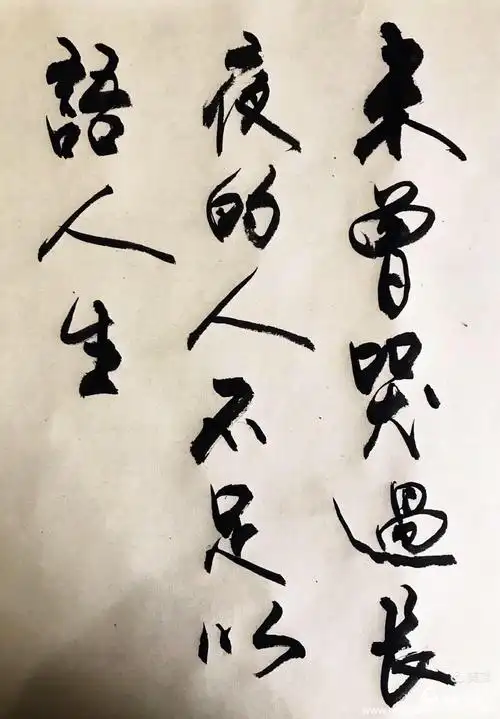 未曾哭過長
夜的人不足以
語人生